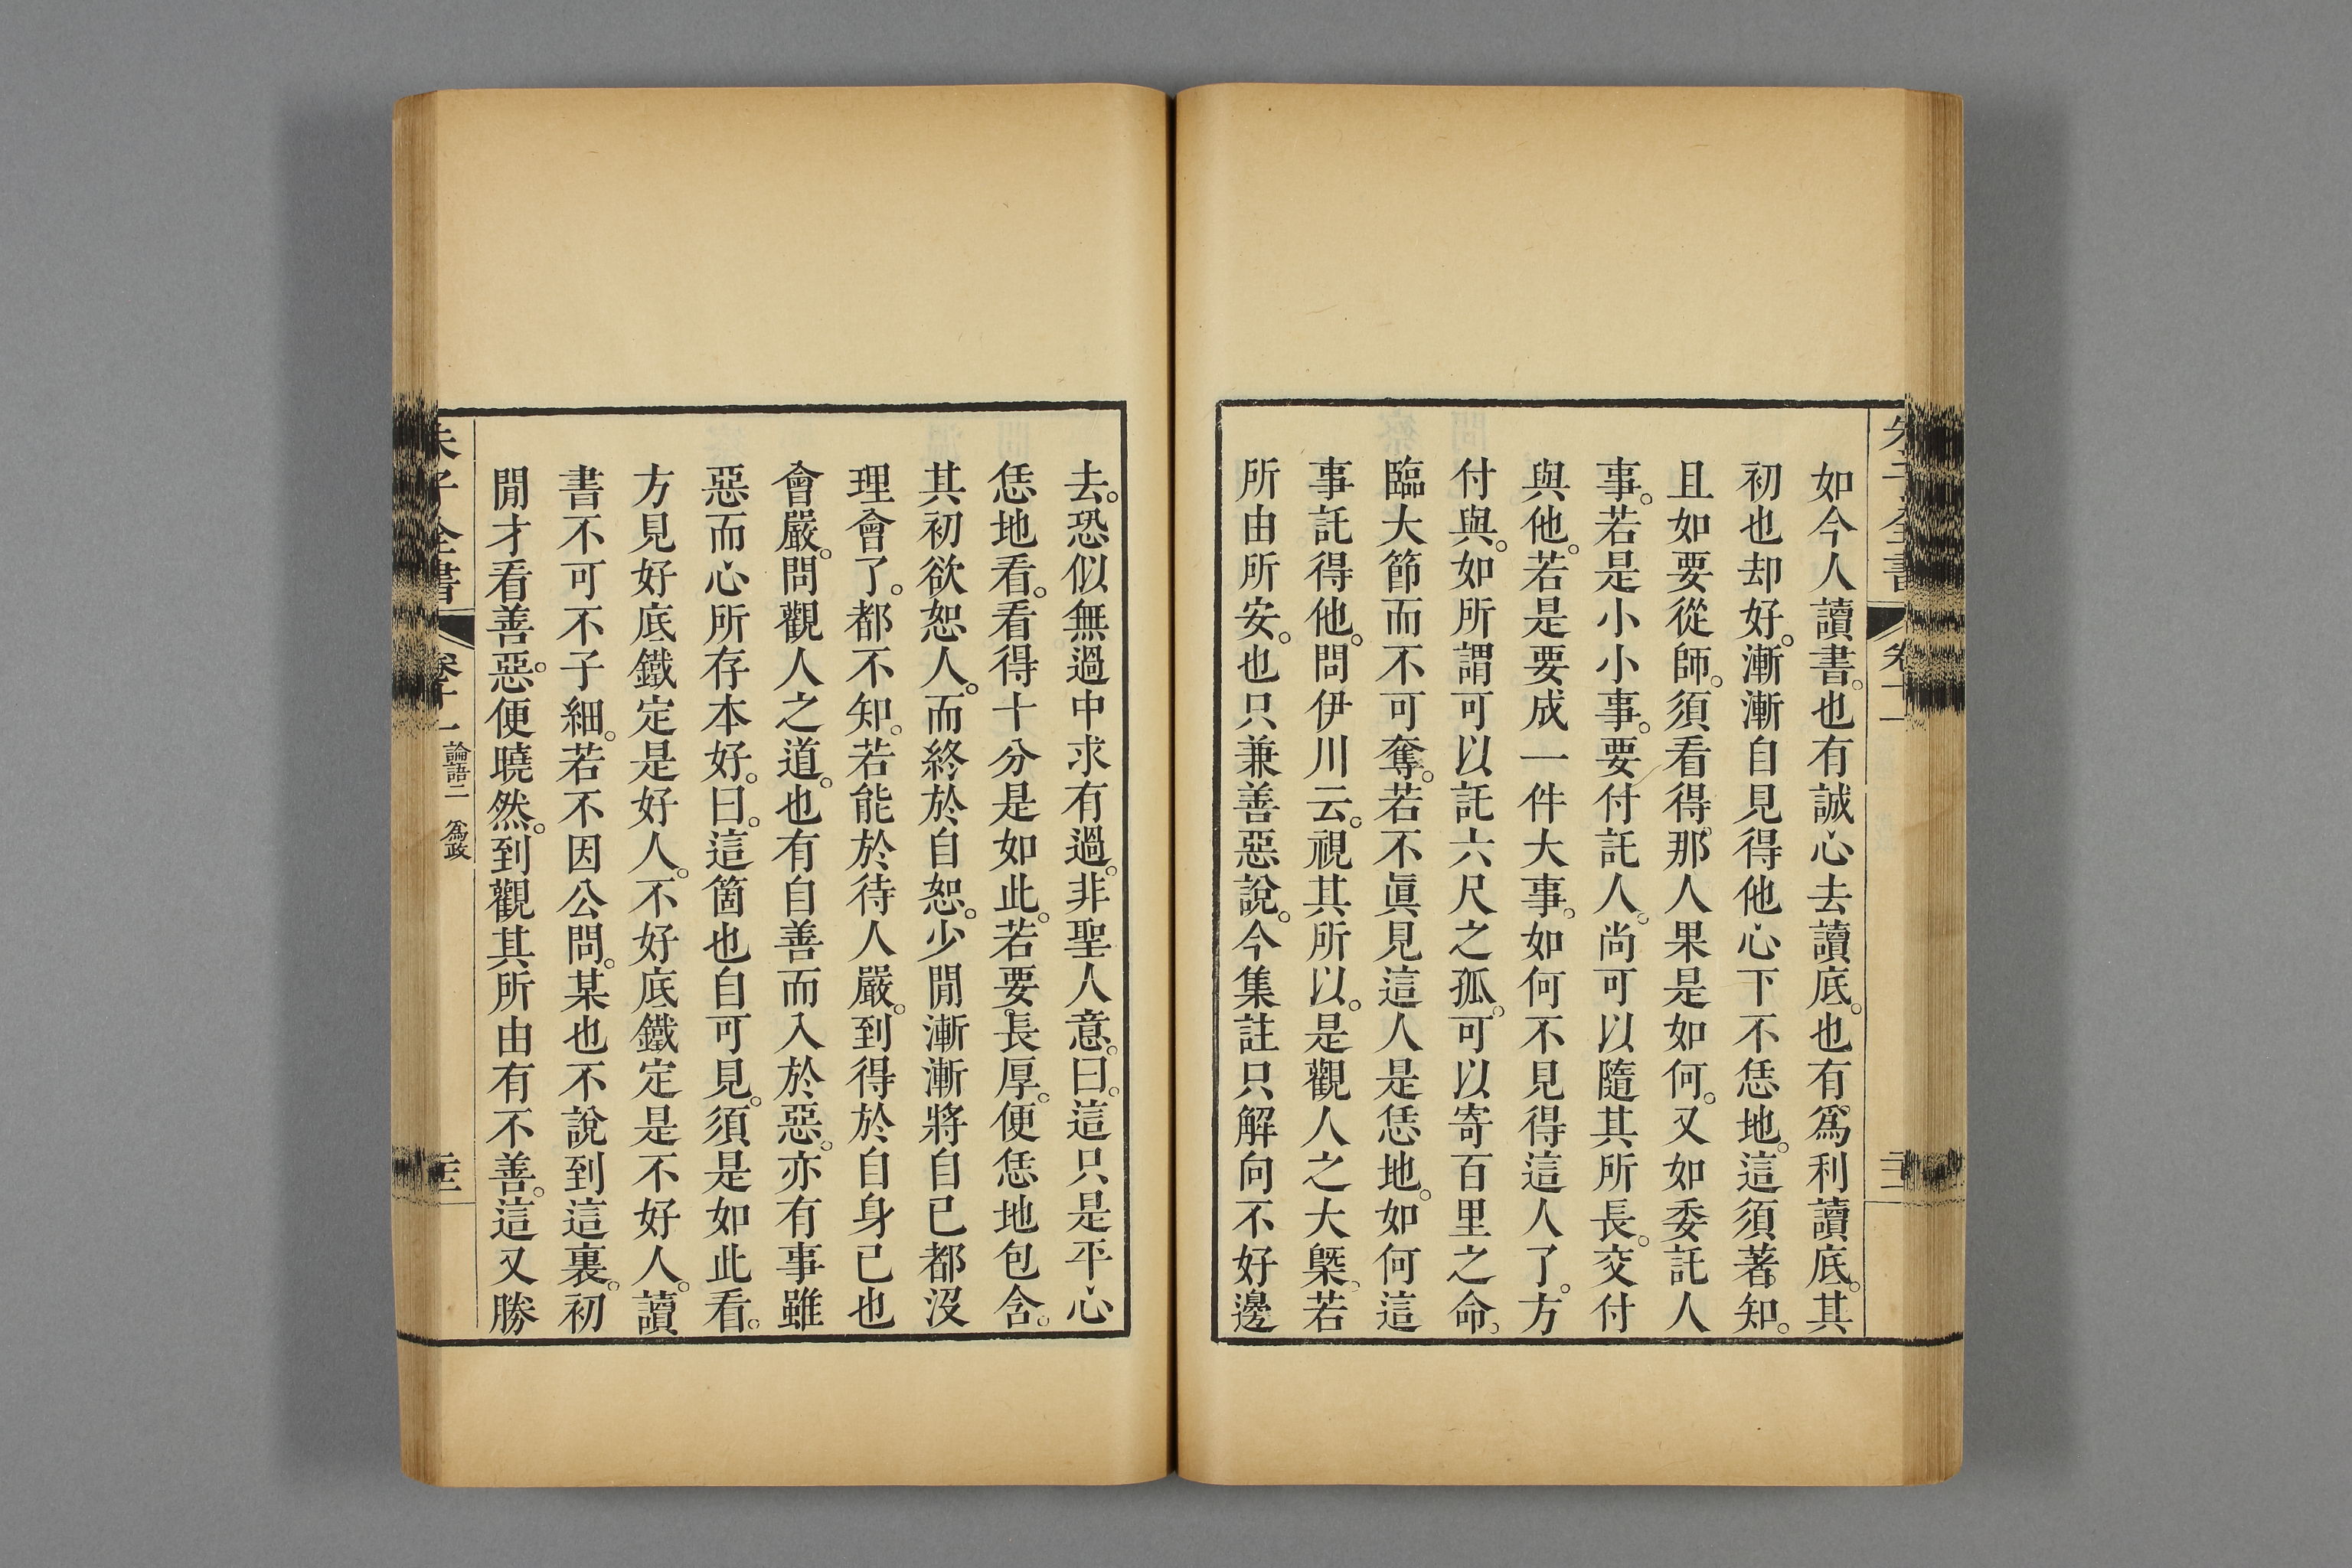 朱子全書 卷十一
如今人讀書。也有誠心去讀底。也有爲利讀底。其
初也却好。漸漸自見得他心下不恁地。這須著知。
且如要從師。須看得那人果是如何。又如委託人
事。若是小小事。要付託人。尚可以隨其所長。交付
與他。若是要成一件大事。如何不見得這人了。方
付與。如所謂可以託六尺之孤。可以寄百里之命。
臨大節而不可奪。若不眞見這人是恁地。如何這
事託得他。問伊川云。視其所以。是觀人之大槩。若
所由所安。也只兼善惡說。今集註只解向不好邊
去。恐似無過中求有過。非聖人意。曰。這只是平心
恁地看。看得十分是如此。若要長厚。便恁地包含。
其初欲恕人。而終於自恕。少閒漸漸將自已都沒
理會了。都不知。若能於待人嚴。到得於自身已也
會嚴。問觀人之道。也有自善而入於惡。亦有事雖
惡而心所存本好。曰。這箇也自可見。須是如此看。
方見好底鐵定是好人。不好底鐵定是不好人。讀
書不可不子細。若不因公問。某也不說到這裏。初
閒才看善惡。便曉然。到觀其所由有不善。這又勝
朱子全書 卷十一 論語二 爲政